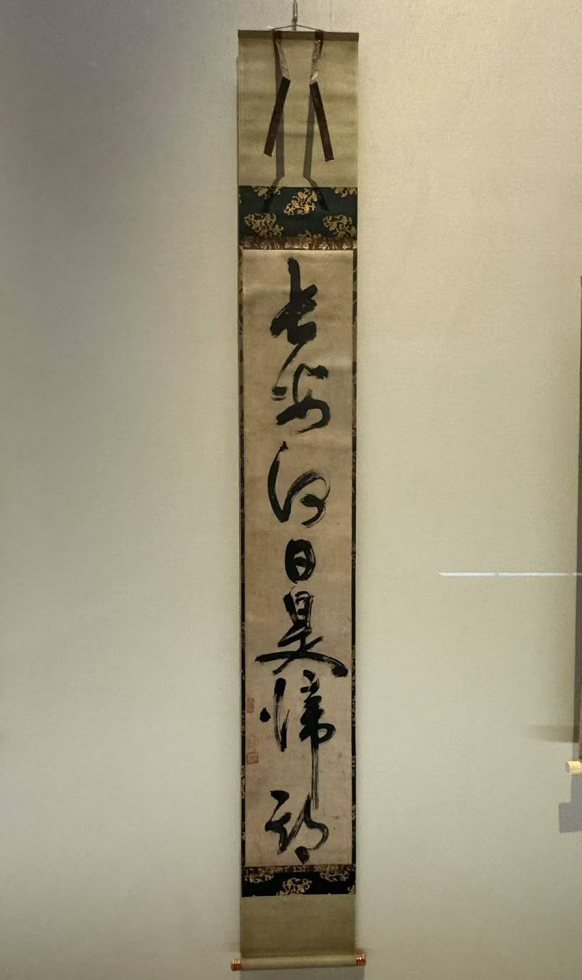 長安何日是帰期